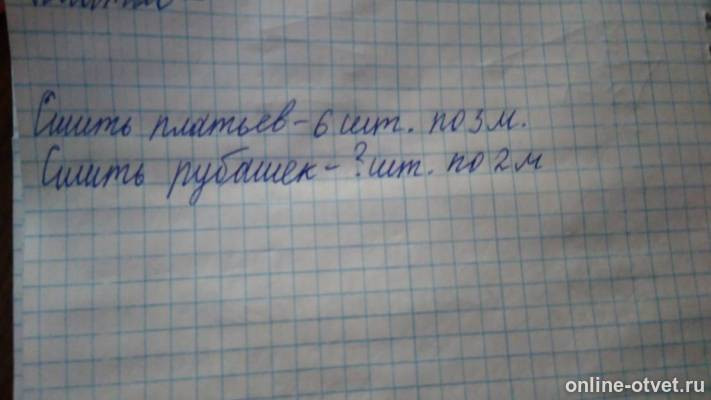 Сшить платьев - 6 шт. по 3 м.
Сшить рубашек - ? шт. по 2 м
online-otvet.ru